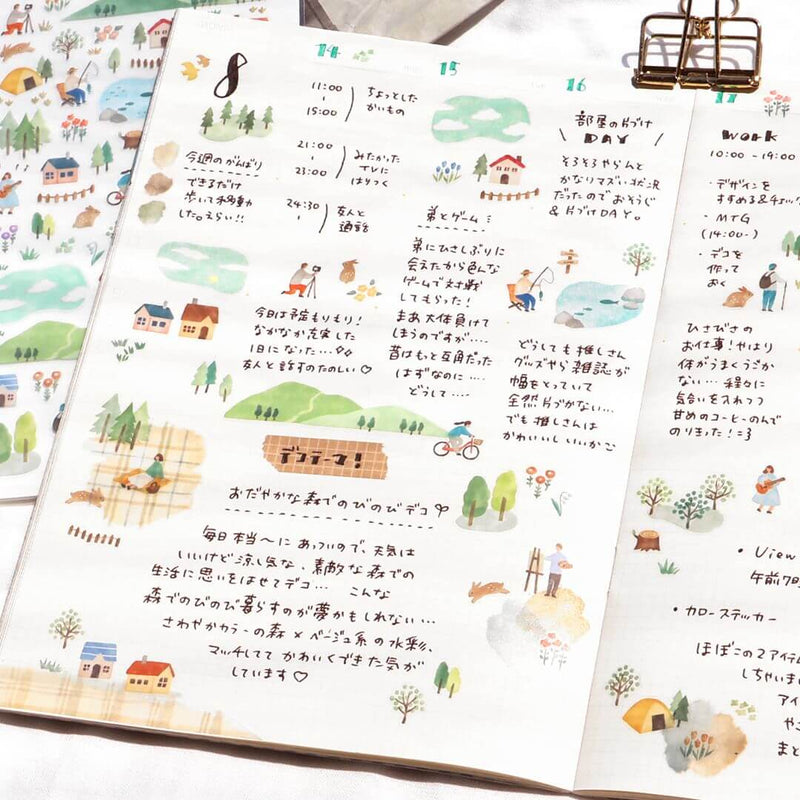 8
今週のがんばり
できるだけ
歩いて移動
した。えらい!!
14
11:00
15:00
ちょっとした
かいもの
21:00
23:00
みたかった
TVに
はりつく
24:30
友人と
通話
今日は予定もりもり!
なかなか充実した
1日になった…
友人と話すのたのしい♡
15
弟とゲーム
弟にひさしぶりに
会えたから色んな
ゲームで対戦
してもらった!
まあ大体負けて
しまうのですが….
昔はもっと互角だった
はずなのに ….
どうして ….
16
部屋の片づけ
\ DAY /
そろそろやらんと
かなりマズい状況
だったのでおそうじ
&片づけDAY。
どうしても推しさん
グッズやら雑誌が
幅をとっていて
全然片づかない…
でも推しさんは
かわいいしいいかご
17
Work
10:00 -19:00
・デザインを
すすめる&チェック
・MTG
(14:00-)
・デコを
作って
おく
ひさびさの
お仕事!やはり
体がうまくうごか
ない… 程々に
気合いを入れつつ
甘めのコーヒーのんで
のりきった!=3
デコテーマ!
おだやかな森でのびのびデコ
毎日本当〜にあっついので、天気は
いいけど涼し気な、素敵な森での
生活に思いをはせてデコ… こんな
森でのびのび暮らすのが夢かもしれない…
さわやかカラーの森×ベージュ系の水彩、
マッチしてて かわいくできた気が
しています♡
・View
午前7時
・カローステッカー
ほぼこの2アイテム
しちゃいま
アイ
やこ
まと